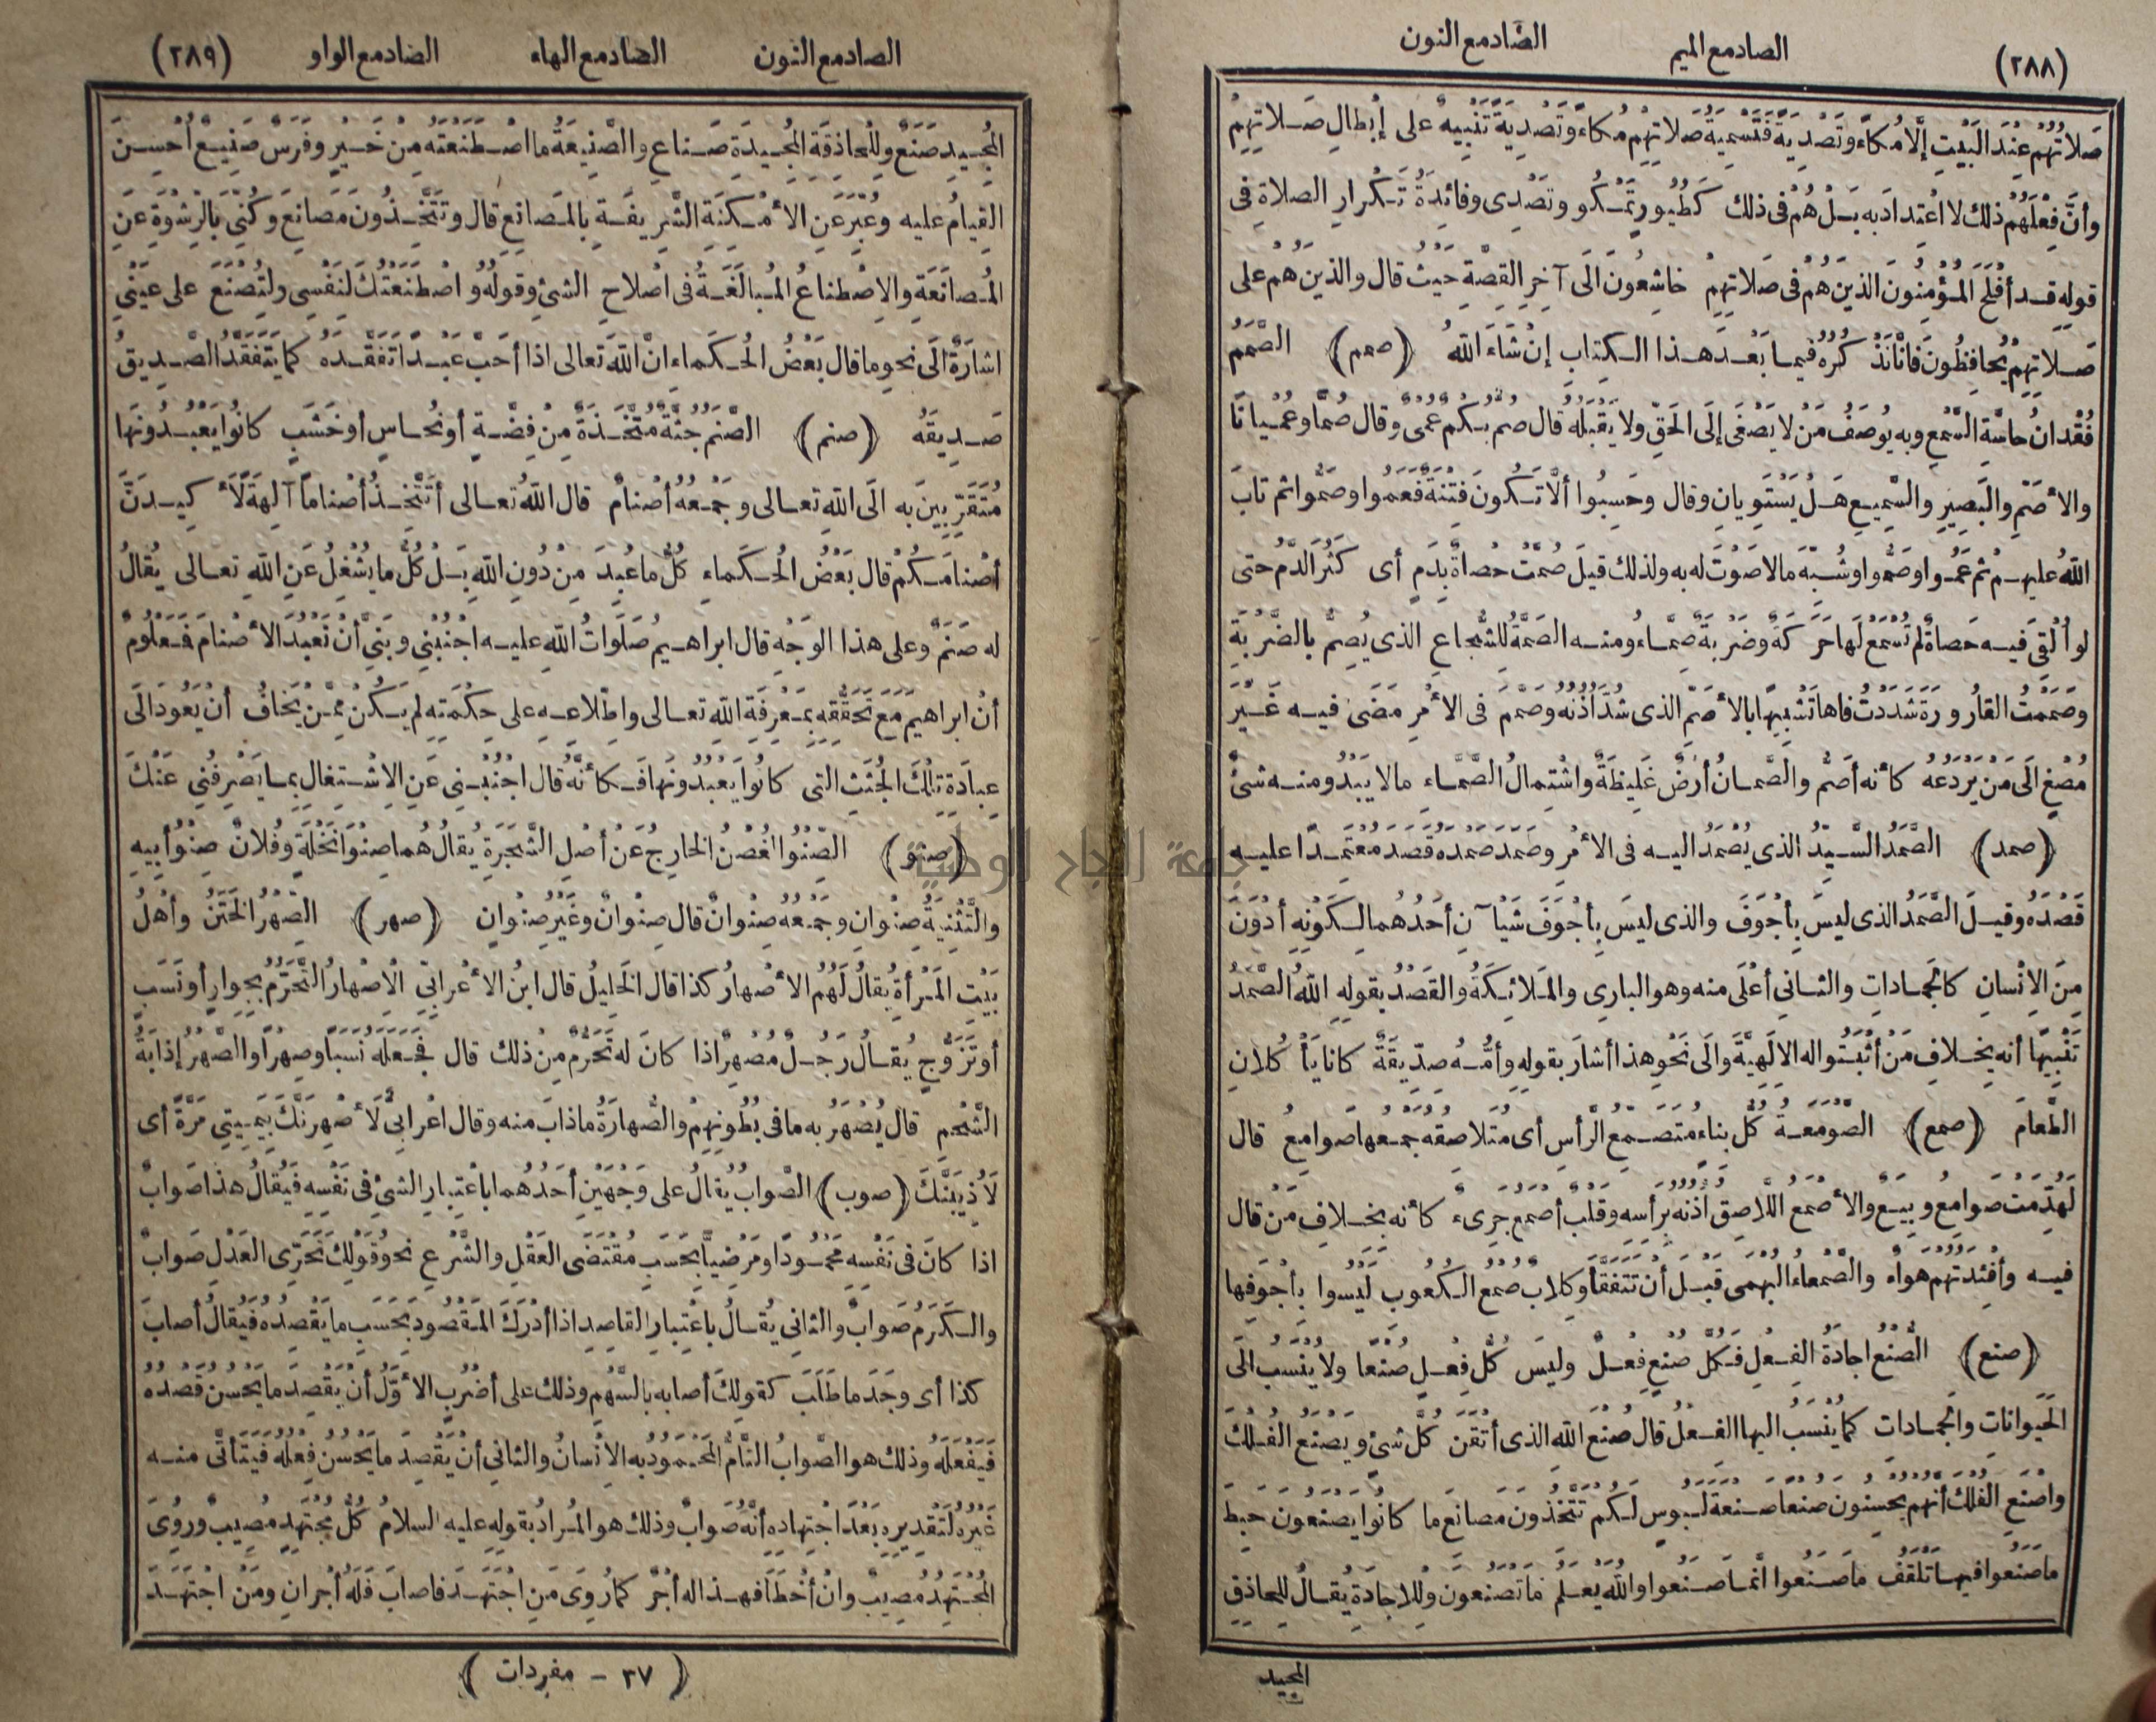 (٢٨٨) الصاد مع الميم الصاد مع النون
صَلاتُهُم عِنْدَ البَيْتِ إلَّا مُكاءً وتَصْدِيَةً فَتَسْمِيَةُ صَلاتِهِم مُكاءً وتَصْدِيَةً تَنْبِيهٌ على إبْطالِ صَلاتِهِم
وأنَّ فِعْلَهُم ذلك لا اعْتِدادَ به بَلْ هُم فى ذلك كَطُيُورٍ تَمْكُو وتَصْدِى وفائِدَةُ تَكْرارِ الصلاةِ فى
قوله قد أفْلَحَ المُؤْمِنُونَ الذينَ هُمْ فى صَلاتِهِم خاشِعُونَ الَى آخِرِ القِصَّةِ حَيْثُ قال والذينَ هُم على
صَلاتِهِم يُحافِظُونَ فانَّا نَذْكُرُهُ فيما بَعْدَ هذا الكتابِ إنْ شَاءَ اللهُ (صمم) الصَّمَمُ
فُقْدانُ حاسَّةِ السَّمْعِ وبه يُوصَفُ مَنْ لا يَصْغَى إلَى الحَقِّ ولا يَقْبَلُهُ قال صُمٌّ بُكْمٌ عُمْىٌ وقال صُمًّا وعُمْيانًا
والأصَمِّ والبَصِيرِ والسَّمِيعِ هَلْ يَسْتَوِيانِ وقال وحَسِبُوا ألَّا تَكُونَ فِتْنَةٌ فَعَمُوا وصَمُّوا ثم تابَ
اللهُ عليهم ثم عَمُوا وصَمُّوا وشُبِّهَ ما لا صَوْتَ له به ولذلك قيلَ صَمَّتْ حَصاةٌ بِدَمٍ أى كَثُرَ الدَّمُ حتى
لو أُلْقِىَ فيه حَصاةٌ لم تُسْمَعْ لَها حَرَكَةٌ وضَرْبَةٌ صَمَّاءُ ومنه الصِّمَّةُ للشُّجاعِ الذى يُصِمُّ بالضَّرْبَةِ
وصَمَمْتُ القارُورَةَ شَدَدْتُ فاها تَشْبِيهًا بالأصَمِّ الذى شُدَّ أُذُنُه وصَمَّمَ فى الأمْرِ مَضَى فيه غَيْرَ
مُصْغٍ الَى مَنْ يَرْدَعُهُ كأنه أصَمُّ والصَّمانُ أرْضٌ غَلِيظَةٌ واشْتِمالُ الصَّمَّاءِ ما لا يَبْدُو منه شىْءٌ
(صمد) الصَّمَدُ السَّيِّدُ الذى يُصْمَدُ اليه فى الأمْرِ وصَمَدَ صَمْدَهُ قَصَدَ مُعْتَمِدًا عليه
قَصْدَهُ وقيلَ الصَّمَدُ الذى ليسَ بِأجْوَفَ والذى ليسَ بِأجْوَفَ شَيْآنِ أحَدُهُما لِكَوْنِهِ أدْوَنَ
مِنَ الإنْسانِ كالجَمادات والثانى أعْلَى منه وهو البارِى والمَلائِكَةُ والقَصْدُ بقوله اللهُ الصَّمَدُ
تَنْبِيهًا أنه بِخِلافِ مَنْ أثْبَتُوا له الإلَهِيَّةَ والَى نَحْوِ هذا أشارَ بقوله وأُمُّهُ صِدِّيقَةٌ كانا يَأْكُلانِ
الطَّعامَ (صمع) الصَّوْمَعَةُ كُلُّ بِناءٍ مُتَصَمِّعِ الرَّأْسِ أى مُتَلاصِقُهُ جمعها صَوامِعُ قال
لَهُدِّمَتْ صَوامِعُ وبِيَعٌ والأصْمَعُ اللَّاصِقُ أُذُنُه بِرَأْسِه وقَلْبٌ أصْمَعُ جَرِىءٌ كأنه بخلافِ مَنْ قال
فيه وأفْئِدَتُهُم هَواءٌ والصَّمْعاءُ البُهْمَى قَبْلَ أنْ تَتَفَقَّأَ وكِلابٌ صُمْعُ الكُعُوبِ لَيْسُوا بِأجْوَفِها
(صنع) الصُّنْعُ اجادَةُ الفِعْلِ فَكُلُّ صُنْعٍ فِعْلٌ وليس كُلُّ فِعْلٍ صُنْعًا ولا يُنْسَبُ الَى
الحَيَواناتِ والجَماداتِ كما يُنْسَبُ اليها الفِعْلُ قال صُنْعَ اللهِ الذى أتْقَنَ كُلَّ شىْءٍ ويَصْنَعُ الفُلْكَ
واصْنَعِ الفُلْكَ أنَّهُم يُحْسِنُونَ صُنْعًا صَنْعَةَ لَبُوسٍ لَكُمْ تَتَّخِذُونَ مَصانِعَ ما كانُوا يَصْنَعُونَ حَبِطَ
ما صَنَعُوا فيها تَلْقَفْ ما صَنَعُوا انَّما صَنَعُوا واللهُ يَعْلَمُ ما تَصْنَعُونَ ولِلاجادَةِ يُقالُ للحاذِقِ
المجيد
الصاد مع النون الصاد مع الهاء الصاد مع الواو (٢٨٩)
المُجِيدِ صَنَعٌ وللحاذِقَةِ المُجِيدَةِ صَناعٌ والصَّنِيعَةُ ما اصْطَنَعْتَهُ مِنْ خَيْرٍ وفَرَسٌ صَنِيعٌ أُحْسِنَ
القِيامُ عليه وعُبِّرَ عَنِ الأمْكِنَةِ الشَّرِيفَةِ بالمَصانِعِ قال وتَتَّخِذُونَ مَصانِعَ وكُنِّىَ بالرِّشْوَةِ عَنِ
المُصانَعَةِ والاِصْطِناعُ المُبالَغَةُ فى اصْلاحِ الشىْءِ وقولُهُ واصْطَنَعْتُكَ لِنَفْسِى ولِتُصْنَعَ على عَيْنِى
اشارَةٌ الَى نحوِ ما قال بَعْضُ الحُكَماءِ انَّ اللهَ تعالى اذا أحَبَّ عَبْدًا تَفَقَّدَهُ كما يَتَفَقَّدُ الصَّدِيقُ
صَدِيقَهُ (صنم) الصَّنَمُ جُثَّةٌ مُتَّخَذَةٌ مِنْ فِضَّةٍ أو نُحاسٍ أو خَشَبٍ كانُوا يَعْبُدُونَها
مُتَقَرِّبِينَ به الَى اللهِ تعالى وجَمْعُهُ أصْنامٌ قال اللهُ تعالى أتَتَّخِذُ أصْنامًا آلِهَةً لَأكِيدَنَّ
أصْنامَكُمْ قال بَعْضُ الحُكَماءِ كُلُّ ما عُبِدَ مِنْ دُونِ اللهِ بَلْ كُلُّ ما يُشْغِلُ عَنِ اللهِ تعالى يُقالُ
له صَنَمٌ وعلى هذا الوجْهِ قال ابراهيمُ صَلَواتُ اللهِ عليه اجْنُبْنِى وبَنِىَّ أنْ نَعْبُدَ الأصْنامَ فَمَعْلُومٌ
أنَّ ابراهيمَ مَعَ تَحَقُّقِه بِمَعْرِفَةِ اللهِ تعالى واطِّلاعِهِ على حِكْمَتِه لم يَكُنْ مِمَّنْ يَخافُ أنْ يَعُودَ الَى
عِبادَةِ تِلْكَ الجُثَثِ التى كانُوا يَعْبُدُونَها فَكأنَّهُ قال اجْنُبْنِى عَنِ الاِشْتِغالِ بما يَصْرِفُنِى عَنْكَ
(صنو) الصِّنْوُ الغُصْنُ الخارِجُ عَنْ أصْلِ الشَّجَرَةِ يُقالُ هُما صِنْوَا نَخْلَةٍ وفُلانٌ صِنْوُ أبِيهِ
والتَّثْنِيَةُ صِنْوانِ وجَمْعُهُ صِنْوانٌ قال صِنْوانٌ وغَيْرُ صِنْوانٍ (صهر) الصِّهْرُ الخَتَنُ وأهْلُ
بَيْتِ المَرْأةِ يُقالُ لَهُمُ الأصْهارُ كذا قال الخَلِيلُ قال ابنُ الأعْرابِىِّ الاِصْهارُ التَّحَرُّمُ بِجِوارٍ أو نَسَبٍ
أو تَزَوُّجٍ يُقالُ رَجُلٌ مُصْهِرٌ اذا كانَ له تَحَرُّمٌ مِنْ ذلك قال فَجَعَلَهُ نَسَبًا وصِهْرًا والصَّهْرُ إذابَةُ
الشَّحْمِ قال يُصْهَرُ به ما فى بُطُونِهِم والصُّهارَةُ ما ذابَ منه وقال اعْرابِىٌّ لَأصْهَرَنَّكَ بِيَمِينِى مَرَّةً أى
لَأُذِيبَنَّكَ (صوب) الصَّوابُ يُقالُ على وجْهَيْنِ أحَدُهُما باعْتِبارِ الشىْءِ فى نَفْسِهِ فَيُقالُ هذا صَوابٌ
اذا كانَ فى نَفْسِهِ مَحْمُودًا ومَرْضِيًّا بِحَسَبِ مُقْتَضَى العَقْلِ والشَّرْعِ نحوُ قَوْلِكَ تَحَرِّى العَدْلِ صَوابٌ
والكَرَمُ صَوابٌ والثانى يُقالُ باعْتِبارِ القاصِدِ اذا أدْرَكَ المَقْصُودَ بِحَسَبِ ما يَقْصِدُهُ فَيُقالُ أصابَ
كذا أى وجَدَ ما طَلَبَ كقولِكَ أصابه بالسَّهْمِ وذلك على أضْرُبٍ الأوَّلُ أنْ يَقْصِدَ ما يَحْسُنُ قَصْدُهُ
فَيَفْعَلَهُ وذلك هو الصَّوابُ التَّامُّ المَحْمُودُ به الانْسانُ والثانى أنْ يَقْصِدَ ما يَحْسُنُ فِعْلُهُ فَيَتَأتَّى منه
غَيْرُهُ لِتَقْدِيرِهِ بَعْدَ اجْتِهادِه أنَّهُ صَوابٌ وذلك هو المُرادُ بقوله عليه السلامُ كُلُّ مُجْتَهِدٍ مُصِيبٌ ورُوِىَ
المُجْتَهِدُ مُصِيبٌ وانْ أخْطَأ فهذا له أجْرٌ كما رُوِىَ مَنِ اجْتَهَدَ فاصابَ فَلَهُ أجْرانِ ومَنْ اجْتَهَدَ
(٣٧ - مفردات)
جامعة النجاح الوطنية